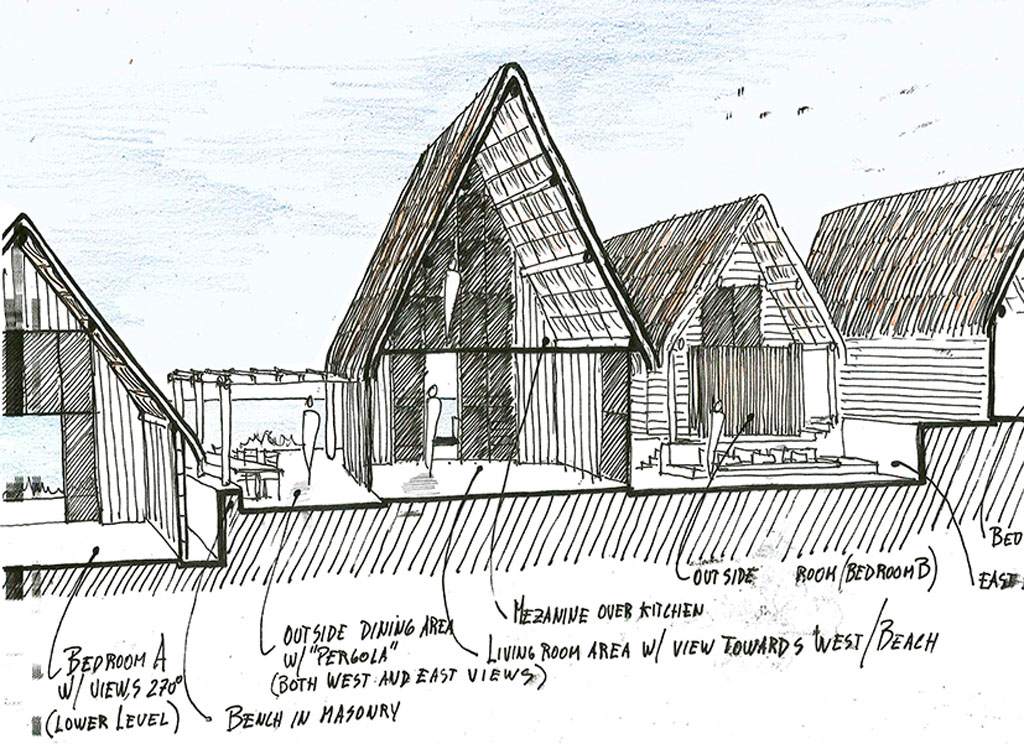 BEDROOM A
W/ VIEWS 270°
(LOWER LEVEL)
BENCH IN MASONRY
OUTSIDE DINING AREA
W/ "PERGOLA"
(BOTH WEST AND EAST VIEWS)
LIVING ROOM AREA W/ VIEW TOWARDS WEST/BEACH
MEZANINE OVER KITCHEN
OUTSIDE ROOM (BEDROOM B)
EAST
BED